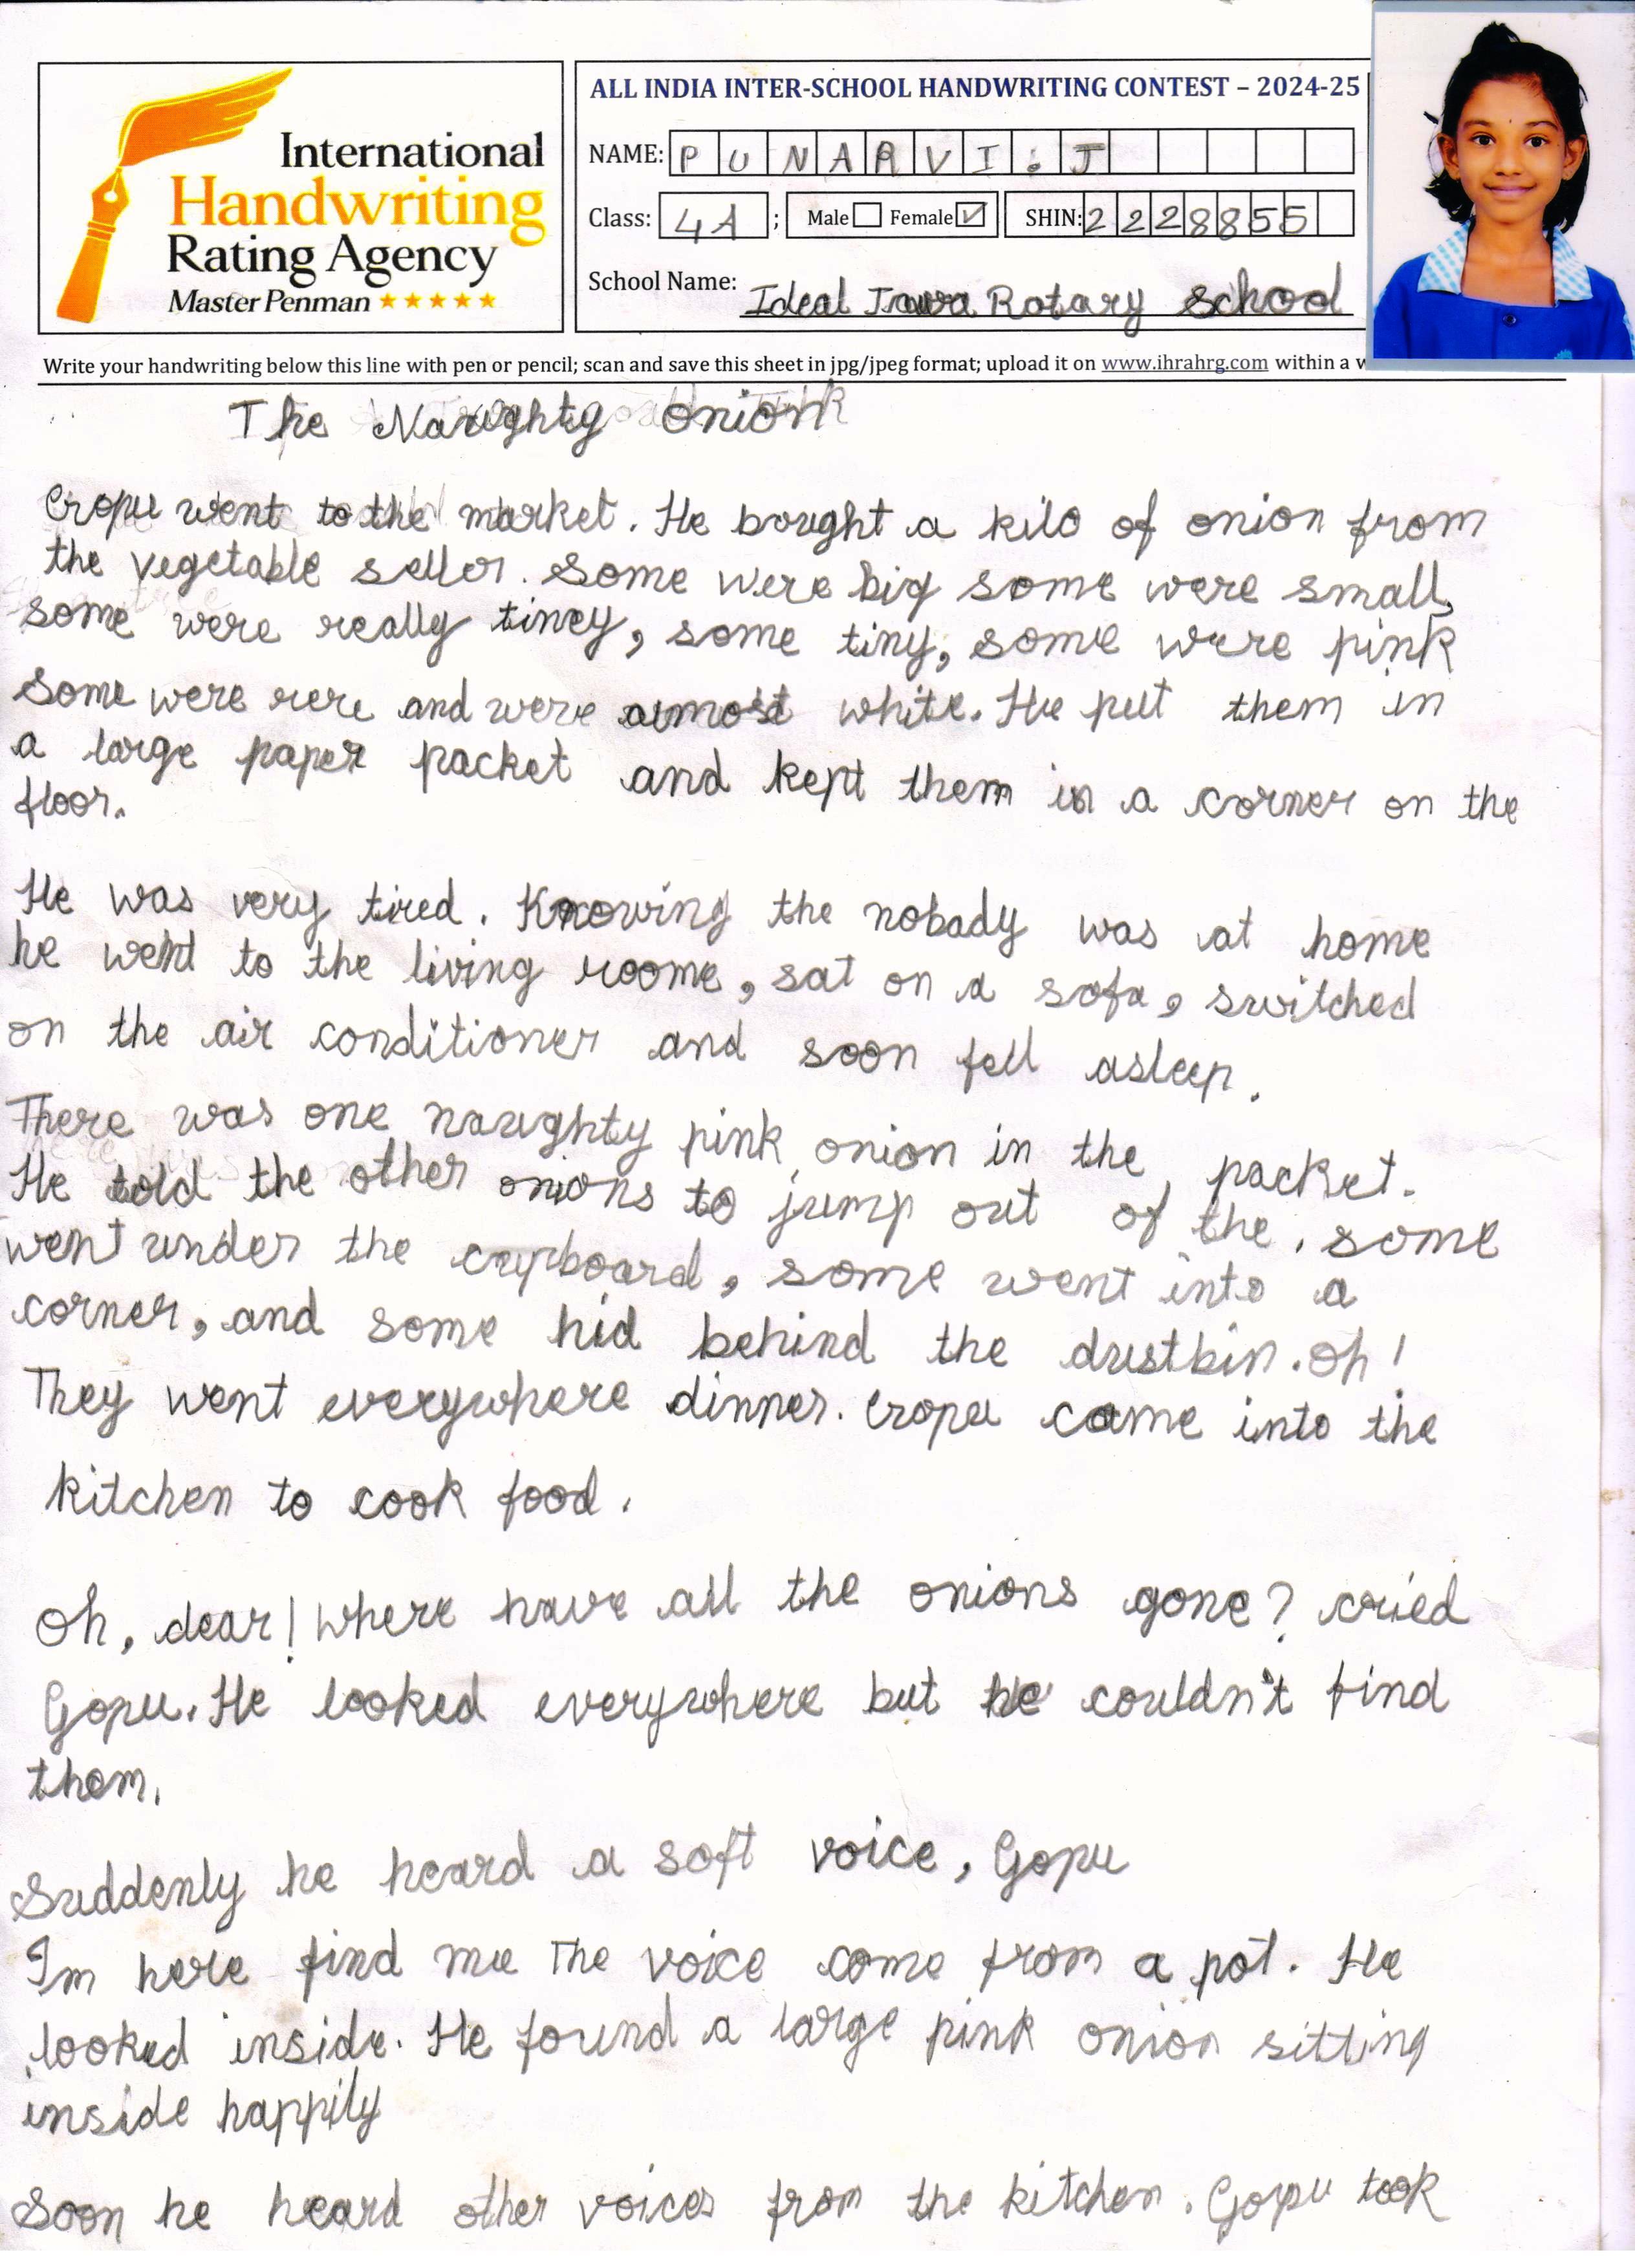 International
Handwriting
Rating Agency
Master Penman
ALL INDIA INTER-SCHOOL HANDWRITING CONTEST – 2024-25
NAME: PUNARVI.J
Class: 4A ; Male Female SHIN: 2228855
School Name: Ideal Jawa Rotary School
Write your handwriting below this line with pen or pencil; scan and save this sheet in jpg/jpeg format; upload it on www.ihrahrg.com within a w
The Naughty onion
Gopu went to the market. He bought a kilo of onion from
the vegetable seller. Some were big some were small,
some were really tiney, some tiny, some were pink
Some were rere and were almost white. He put them in
a large paper packet and kept them in a corner on the
floor.
He was very tired. Knowing the nobady was at home
he went to the living roome, sat on a sofa, switched
on the air conditioner and soon fell asleep.
There was one naughty pink onion in the packet.
He told the other onions to jump out of the. some
went under the cupboard, some went into a
corner, and some hid behind the dustbin. Oh!
They went everywhere dinner. Gopu came into the
kitchen to cook food.
Oh, dear! Where have all the onions gone? cried
Gopu. He looked everywhere but he couldn't find
them.
Suddenly he heard a soft voice, Gopu
Im here find me The voice come from a pot. He
looked inside. He found a large pink onion sitting
inside happily
Soon he heard other voices from the kitchen. Gopu took